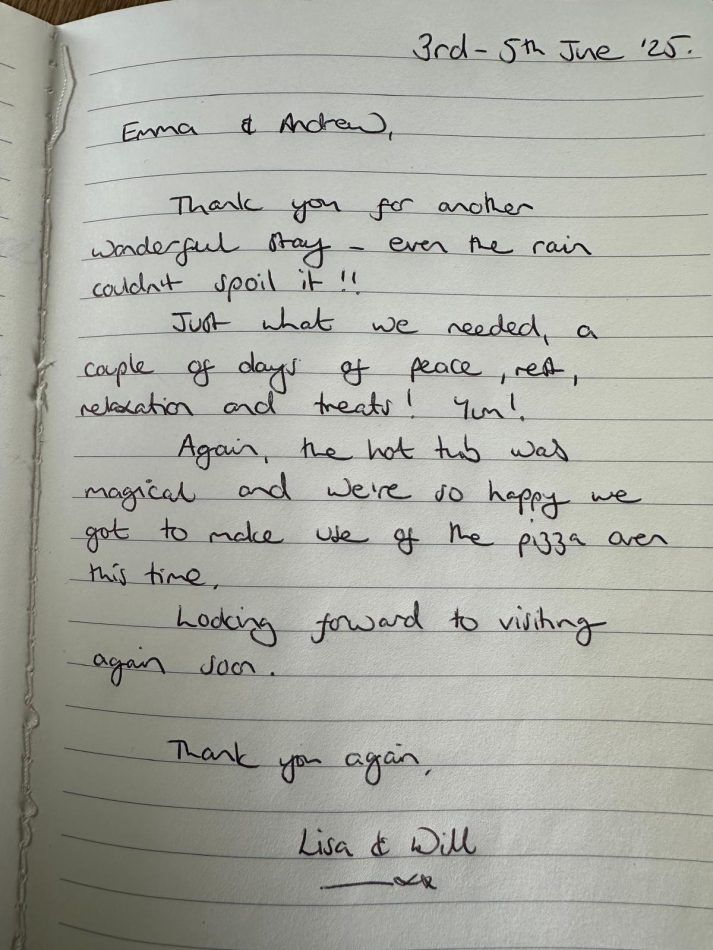 3rd - 5th June '25.
Emma & Andrew,
Thank you for another
wonderful stay - even the rain
couldn't spoil it !!
Just what we needed, a
couple of days of peace, rest,
relaxation and treats! Yum!
Again, the hot tub was
magical and we're so happy we
got to make use of the pizza oven
this time.
Looking forward to visiting
again soon.
Thank you again,
Lisa & Will
xx